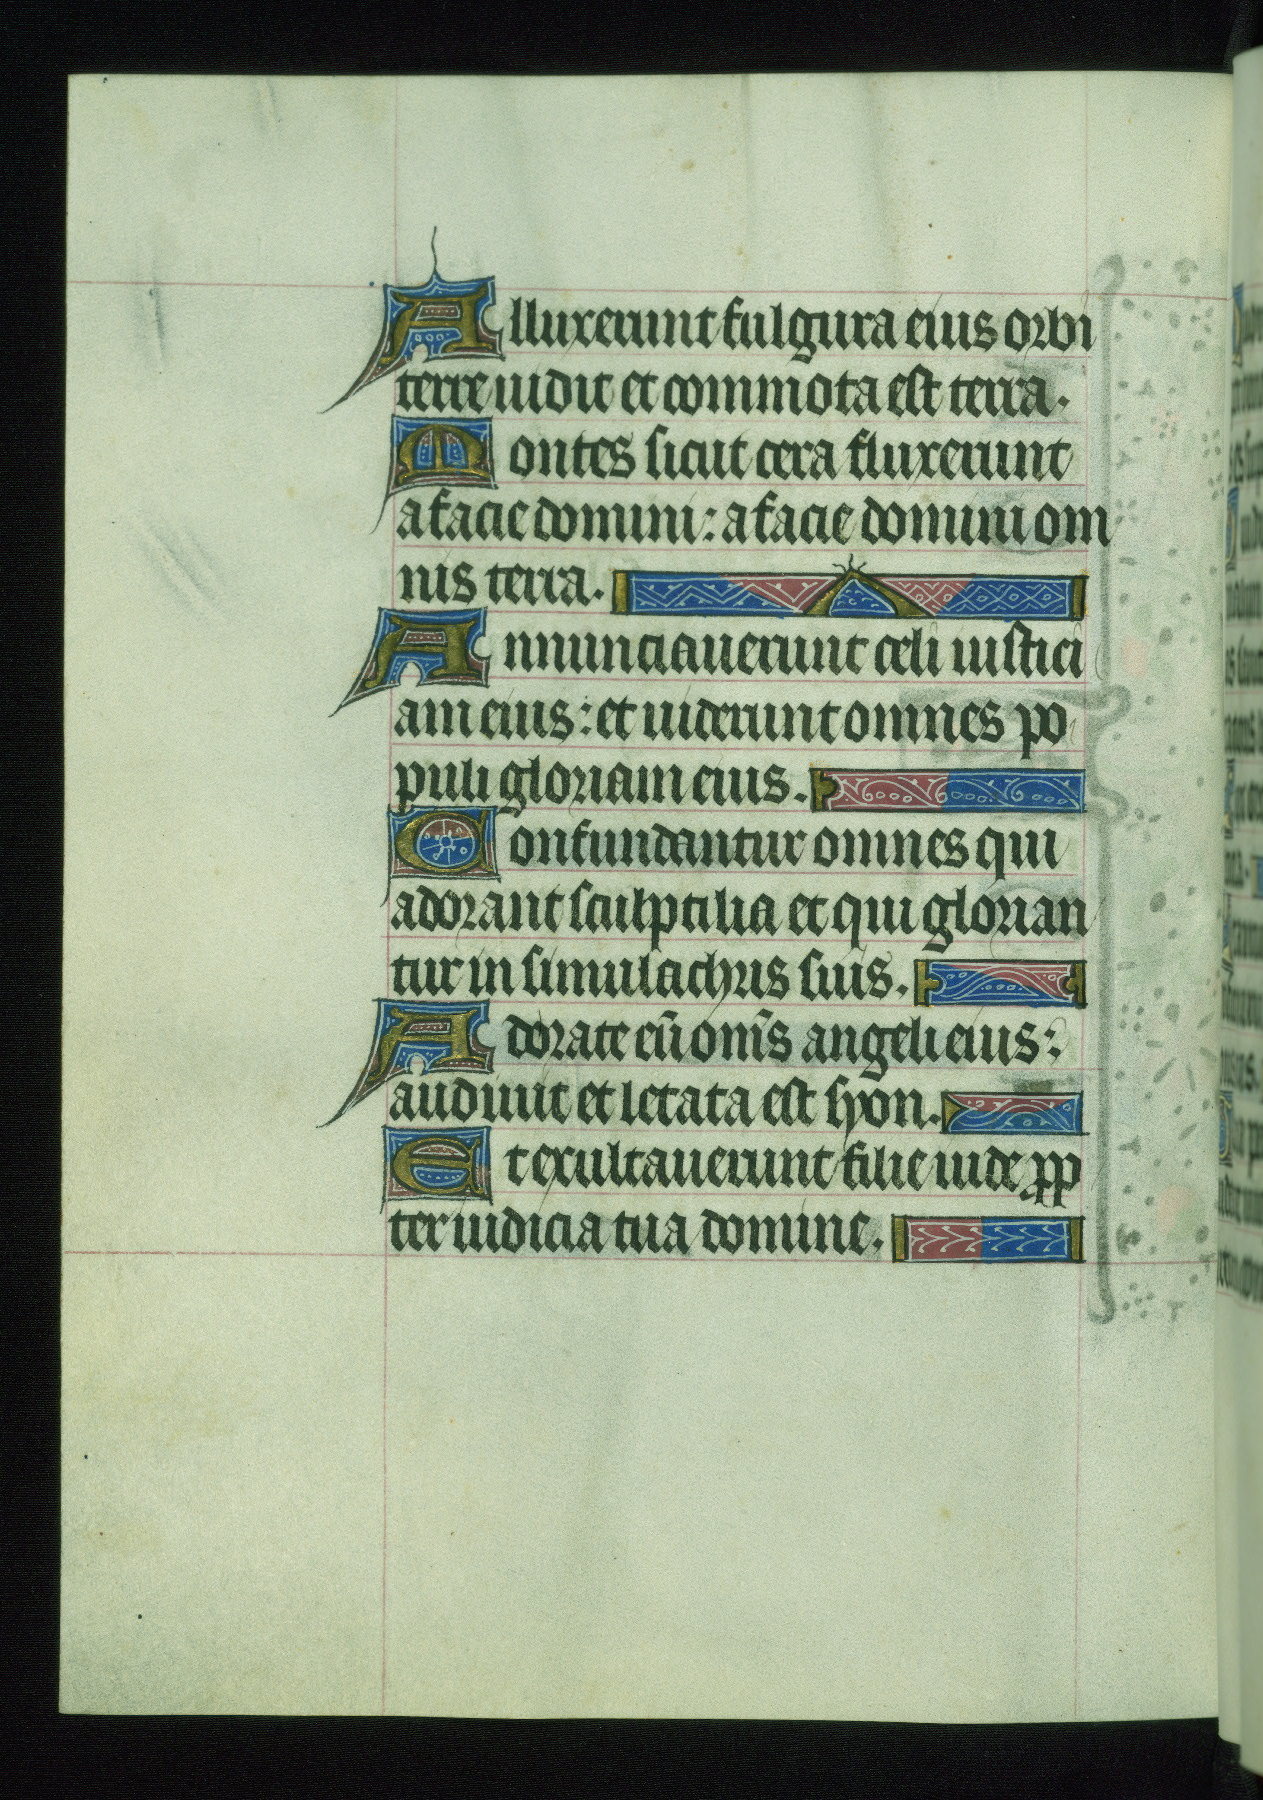 Alluxerunt fulgura eius orbi
terre uidit et commota est terra.
Montes sicut cera fluxerunt
a facie domini: a facie domini om
nis terra.
Annunciauerunt celi iustici
am eius: et uiderunt omnes po
puli gloriam eius.
Confundantur omnes qui
adorant sculptilia et qui glorian
tur in simulachris suis.
Adorate eū om̄s angeli eius:
audiuit et letata est syon.
Et exultauerunt filie iude ꝓp
ter iudicia tua domine.